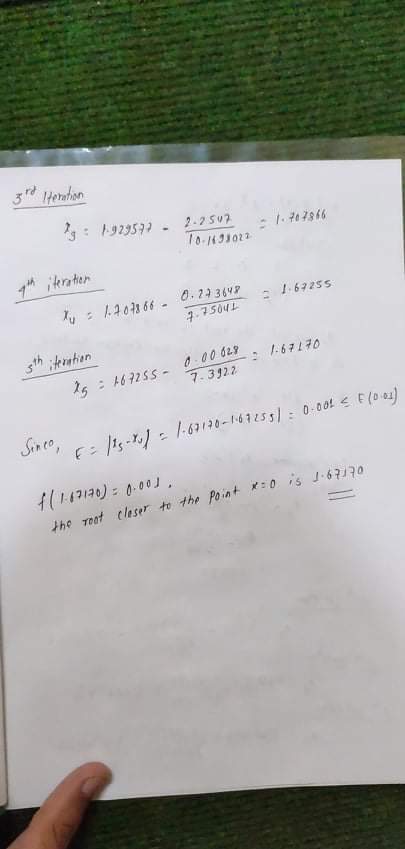 3rd Iteration
x3 = 1.929577 - 2.2547/10.1698022 = 1.707866
4th iteration
x4 = 1.707866 - 0.273648/7.75041 = 1.67255
5th iteration
x5 = 1.67255 - 0.00628/7.3922 = 1.67170
Since, E = |x5-x4| = |1.67170-1.67255| = 0.001 ≤ E(0.01)
f(1.67170) = 0.001.
the root closer to the point x=0 is 1.67170